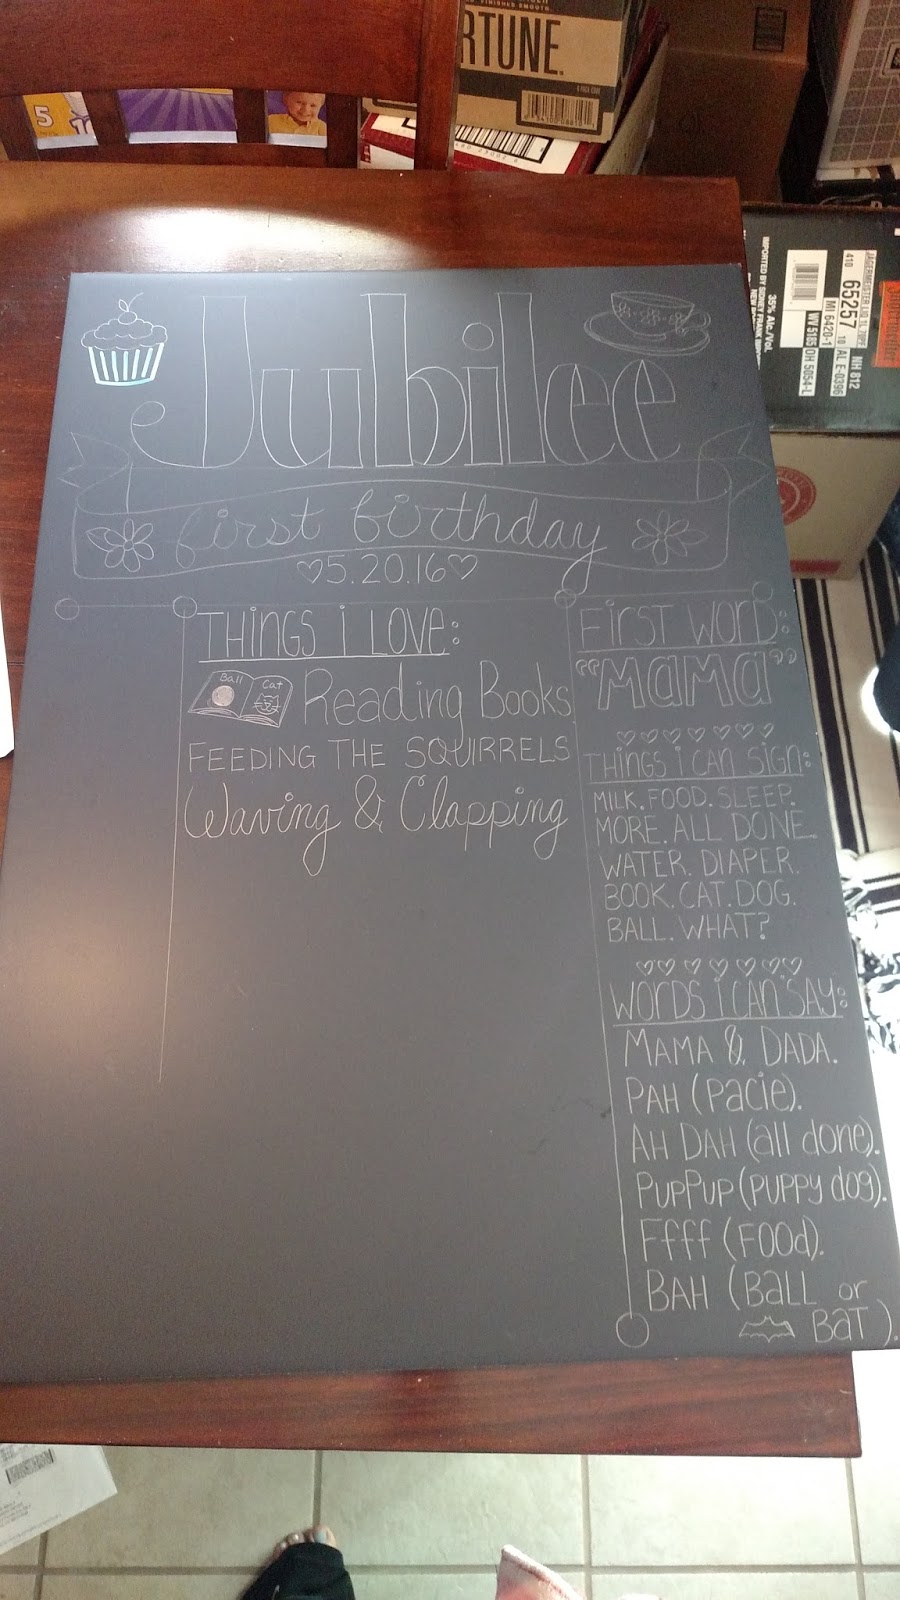 RTUNE.
5
Jubilee
first birthday
5.20.16
THINGS I LOVE:
Ball
Cat
Reading Books
FEEDING THE SQUIRRELS
Waving & Clapping
FIRST WORD:
"MAMA"
THINGS I CAN SIGN:
MILK. FOOD. SLEEP.
MORE. ALL DONE.
WATER. DIAPER.
BOOK. CAT. DOG.
BALL. WHAT?
WORDS I CAN SAY:
MAMA & DADA.
PAH (Pacie).
AH DAH (all done).
PUPPUP (PUPPY dog).
Fffff (FOOd).
BAH (BaLL or
BaT).
IMPORTED BY SIDNEY FRANK
35% Alc./Vol.
65257
MI 6420-1
AL E-0396
NH 812
VV 5165
OH 5054-L